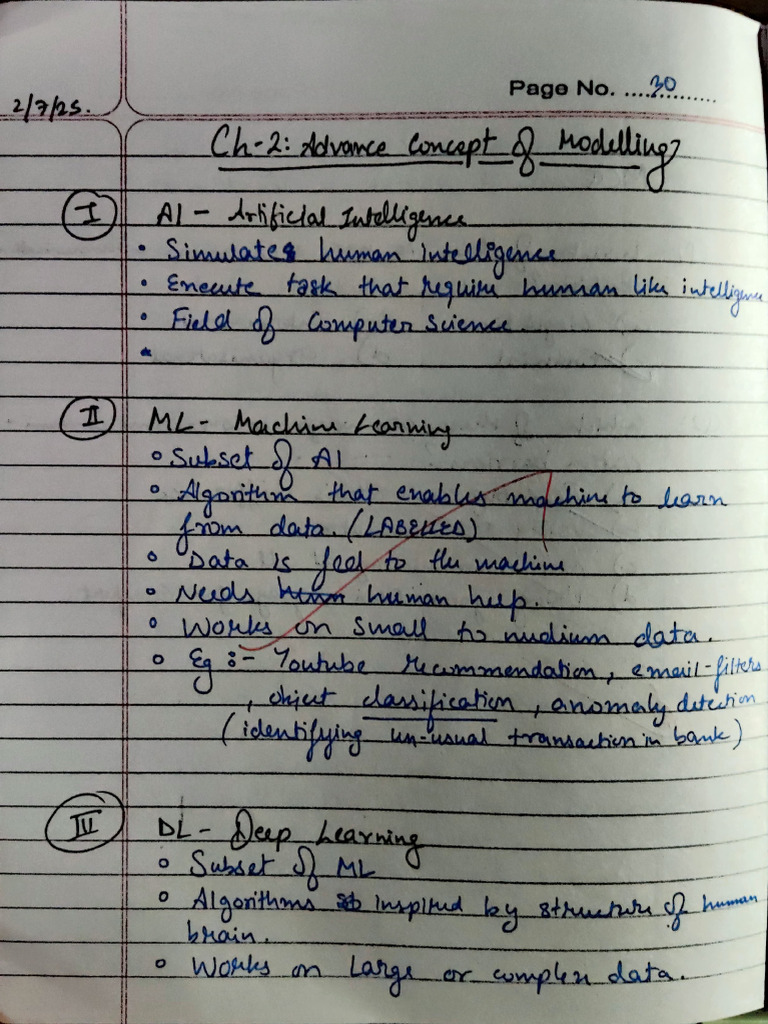 Page No. 30
2/7/25.
Ch-2: Advance Concept of Modelling
I AI - Artificial Intelligence
• Simulates human intelligence
• Execute task that require human like intelligence
• Field of Computer Science.
•
II ML - Machine Learning
∘ Subset of AI
∘ Algorithm that enables machine to learn
from data. (LABELLED)
∘ Data is feed to the machine
∘ Needs human help.
∘ Works on small to medium data.
∘ Eg :- Youtube recommendation, email-filters
, object classification, anomaly detection
(identifying un-usual transaction in bank)
III DL - Deep Learning
∘ Subset of ML
∘ Algorithms inspired by structure of human
brain.
∘ Works on Large or complex data.